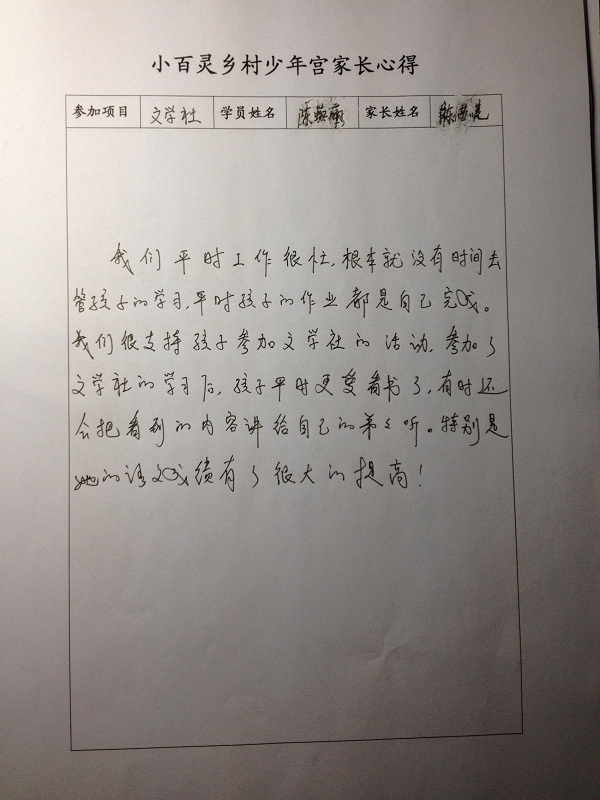 小百灵乡村少年宫家长心得
参加项目 文学社 学员姓名 陈 家长姓名
我们平时工作很忙,根本就没有时间去
管孩子的学习,平时孩子的作业都是自己完成。
我们很支持孩子参加文学社的活动,参加了
文学社的学习后,孩子平时更爱看书了,有时还
会把看到的内容讲给自己的弟弟听。特别是
她的语文成绩有了很大的提高!